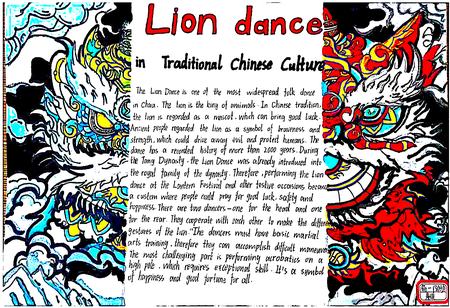 Lion dance
in Traditional Chinese Culture
The Lion Dance is one of the most widespread folk dance
in China. The lion is the king of animals. In Chinese tradition,
the lion is regarded as a mascot, which can bring good luck.
Ancient people regarded the lion as a symbol of braveness and
strength, which could drive away evil and protect humans. The
dance has a recorded history of more than 2,000 years. During
the Tang Dynasty, the Lion Dance was already introduced into
the royal family of the dynasty. Therefore, performing the lion
dance at the Lantern Festival and other festive occasions became
a custom where people could pray for good luck, safety and
happiness. There are two dancers—one for the head and one
for the rear. They cooperate with each other to make the different
gestures of the lion. The dancers must have basic martial
arts training, therefore they can accomplish difficult maneuvers
the most challenging part is performing acrobatics on a
high pole, which requires exceptional skill. It's a symbol
of happiness and good fortune for all.